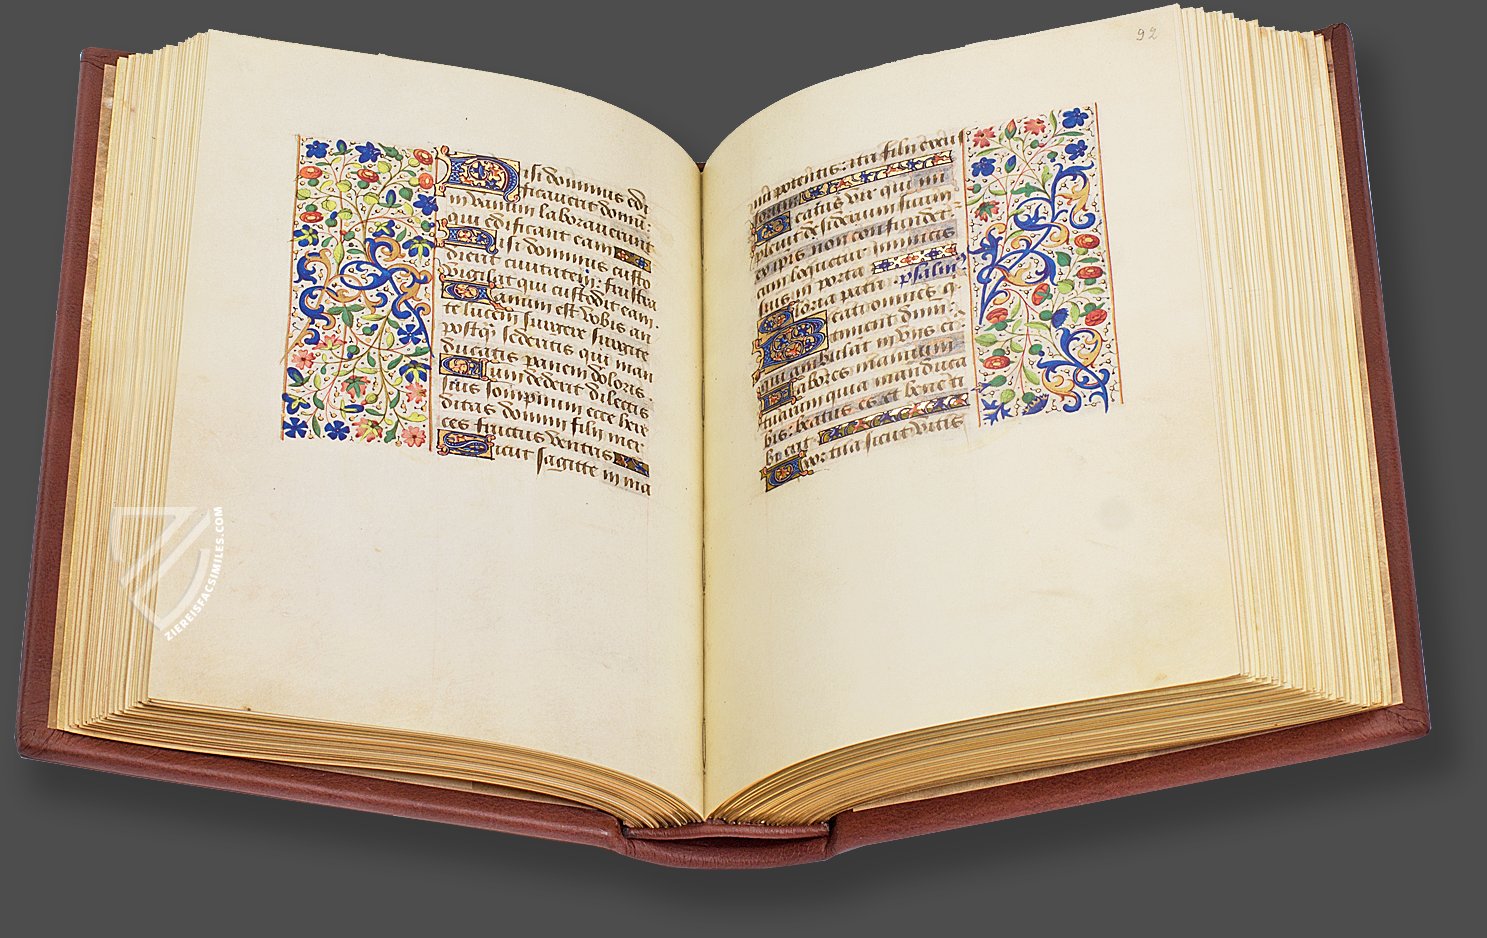 Nisi dominus edi
ficaverit domū:
in vanum laboraverunt
qui edificant eam
Nisi dominus custo
dierit civitatem: frustra
vigilat qui custodit eam.
Vanum est vobis an
te lucem surgere surgite
postq̄ sederitis qui man
ducatis panem doloris
Cum dederit dilectis
suis sompnum ecce here
ditas domini filii mer
ces fructus ventris
Sicut sagitte in ma
92
nu potentis: ita filii excus
sorum
Beatus vir qui im
plevit desiderium suum
ex ipsis non confundetur:
cum loquetur inimicis
suis in porta psalm9
Gloria patri
Beati omnes q̄
timent dnm:
qui ambulāt in viis ei9
Labores manuum
tuarum quia manduca
bis: beatus es et bene ti
bi erit
Uxor tua sicut vitis
ZIEREISFACSIMILES.COM